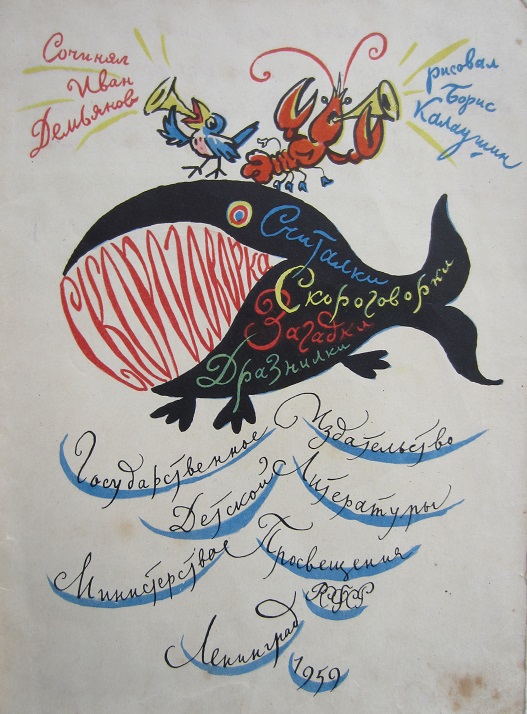 Сочинял
Иван
Демьянов
рисовал
Борис
Калаушин
СКОРОГОВОРКА
Считалки
Скороговорки
Загадки
Дразнилки
Государственное Издательство
Детской Литературы
Министерства Просвещения
РСФСР
Ленинград
1959